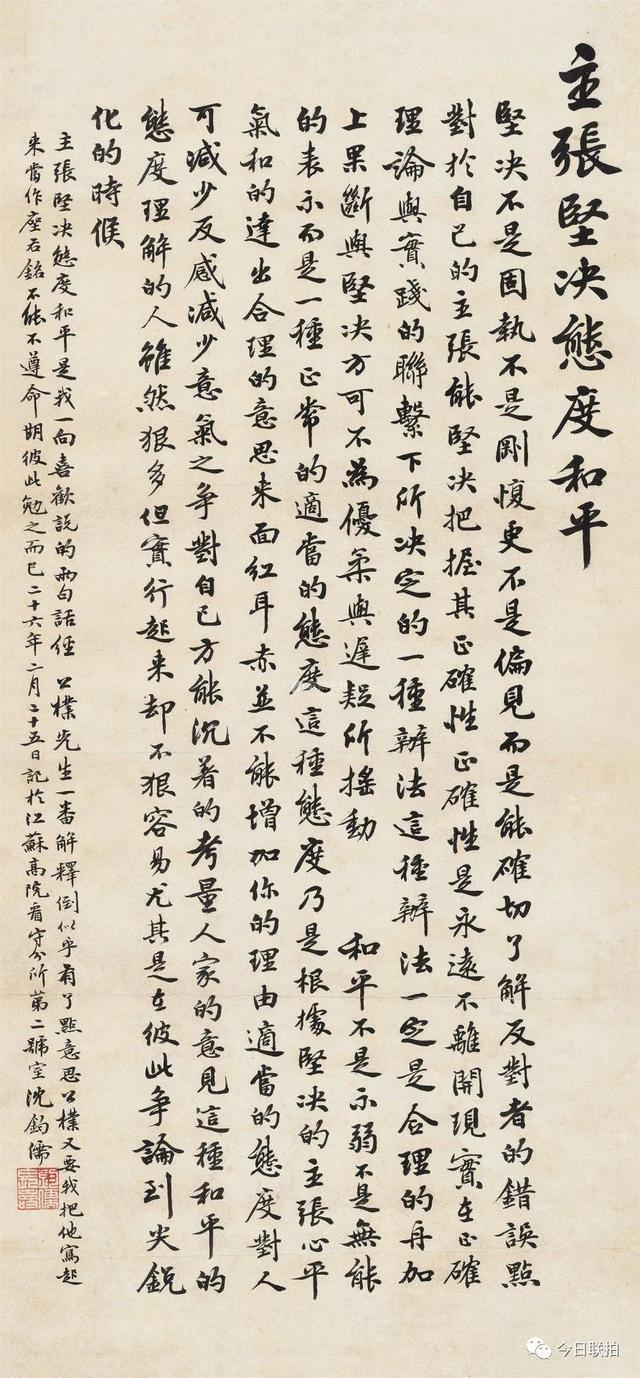 主張堅决態度和平
堅决不是固執不是剛愎更不是偏見而是能確切了解反對者的錯誤點
對於自己的主張能堅决把握其正確性正確性是永遠不離開現實在正確
理論與實踐的聯繫下所决定的一種辦法這種辦法一定是合理的再加
上果斷與堅决方可不為優柔與遲疑所搖動 和平不是示弱不是無能
的表示而是一種正常的適當的態度這種態度乃是根據堅决的主張心平
氣和的達出合理的意思来面紅耳赤並不能增加你的理由適當的態度對人
可減少反感減少意氣之争對自己方能沉著的考量人家的意見這種和平的
態度理解的人雖然狠多但實行起来却不狠容易尤其是在彼此争論到尖銳
化的時候
主張堅决態度和平是我一向喜歡説的兩句話經 公樸先生一番解釋倒似乎有了點意思公樸又要我把他寫起
来當作座右銘不能不遵命期彼此勉之而已二十六年二月二十五日記於江蘇高院看守分所第二號室沈鈞儒
今日联拍